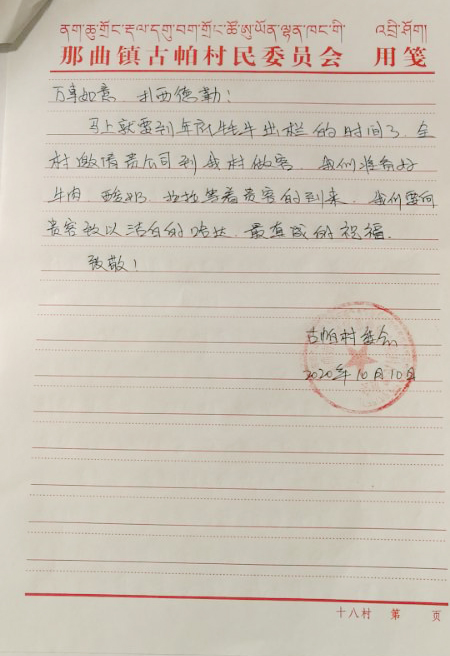 ནག་ཆུ་གྲོང་རྡལ་དགུ་བག་གྲོང་ཚོ་ཨུ་ཡོན་ལྷན་ཁང་གི་ འབྲི་ཤོག
那曲镇古帕村民委员会 用笺
万事如意 扎西德勒!
马上就要到年底牦牛出栏的时间了,全
村邀请贵公司到我村做客,我们准备好
牛肉、酸奶、拉拉等着贵客的到来,我们要向
贵客致以洁白的哈达,最真诚的祝福,
致敬!
古帕村委会
2020年10月10日
十八村 第 页